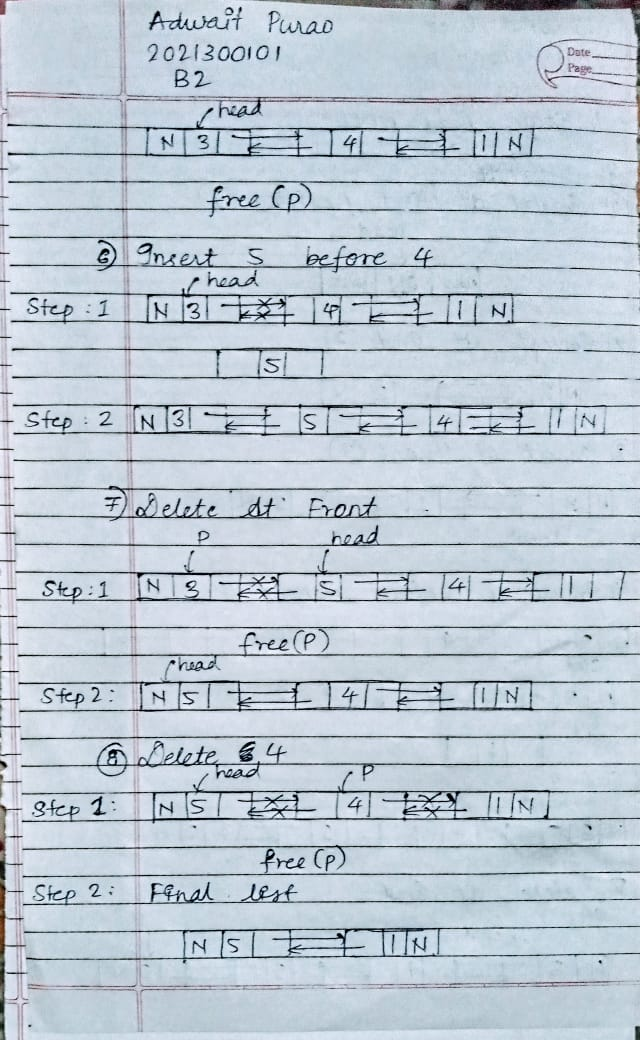 Adwait Purao
2021300101
B2
Date
Page
head
N 3 4 1 N
free (P)
6) Insert 5 before 4
head
Step : 1 N 3 4 1 N
5
Step : 2 N 3 5 4 1 N
7) Delete At Front
P head
Step : 1 N 3 5 4 1
free (P)
head
Step 2 : N 5 4 1 N
8) Delete 4
head P
Step 1 : N 5 4 1 N
free (P)
Step 2 : Final list
N 5 1 N